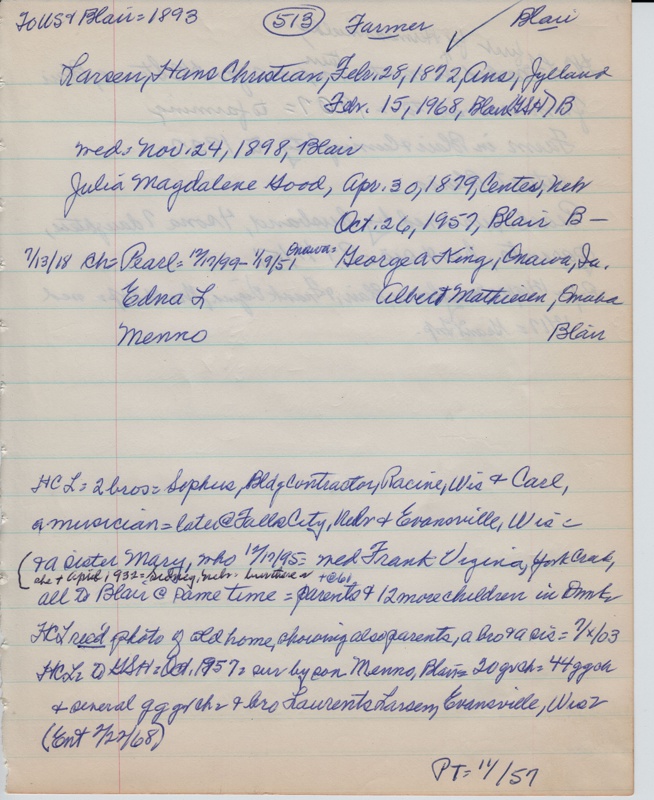 To US & Blair = 1893 513 Farmer Blair
Larsen, Hans Christian, Febr. 28, 1872, Ans, Jylland
Febr. 15, 1968, Blair (GSH) B
med: Nov. 24, 1898, Blair
Julia Magdalene Good, Apr. 30, 1879, Center, Nebr
Oct. 26, 1957, Blair B –
7/13/18 ch = Pearl = 12/12/99 – 1/19/51 Onawa = George A King, Onawa, Ia.
Edna L Albert Mathiesen, Omaha
Menno Blair
HCL = 2 bros = Sophus, Bldg Contractor, Racine, Wis & Carl,
a musician = later @ Falls City, Nebr & Evansville, Wis =
( & a sister Mary, who 12/17/95 = med Frank Virginia, York Creek,
she + April, 1932 = Sidney, Nebr. +@61
all to Blair @ same time = parents & 12 more children in Dmk
HCL rec'd photo of old home, showing also parents, a bro & a sis = 7/x/03
HCL = to GSH = Oct. 1957 = sur by son Menno, Blair = 20 grch = 44 ggch
& several gg grch & bro Laurents Larsen, Evansville, Wis
(Ent 2/22/68)
PT = 11/57